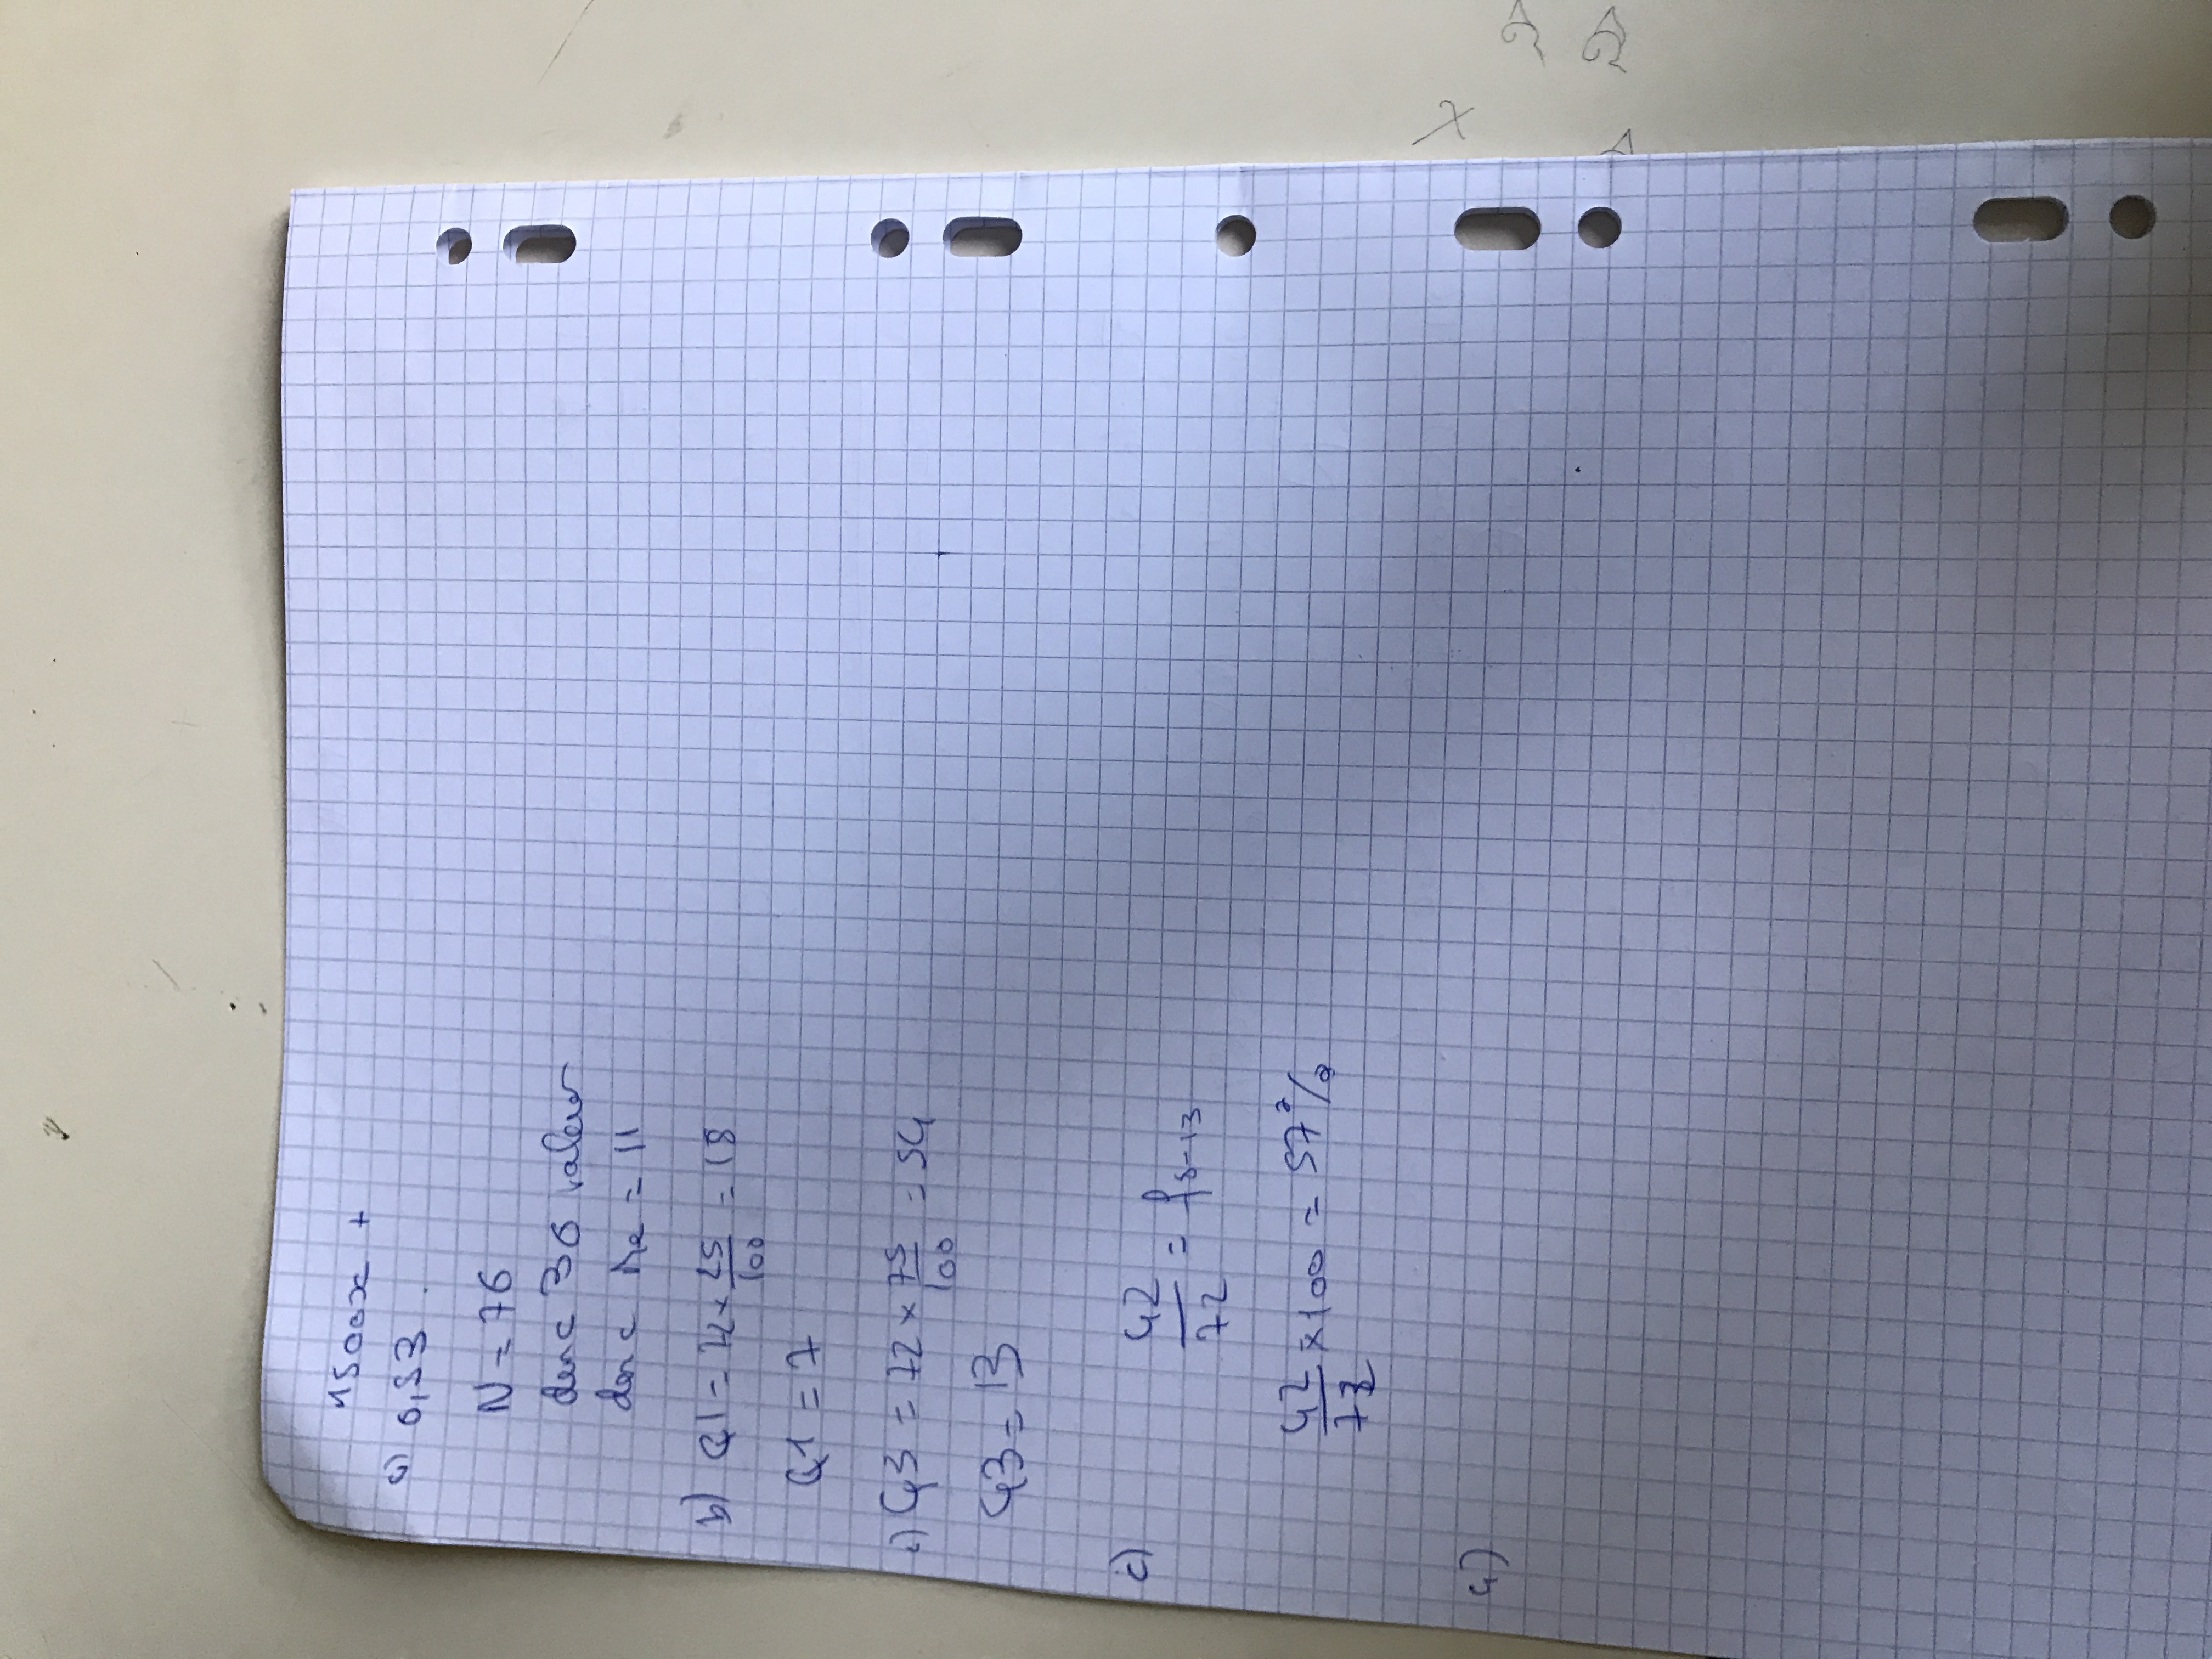 1500x +
a) 0,53.
N = 76
donc 36 valeur
donc Me = 11
b) Q1 = 72 × 25/100 = 18
Q1 = 7
c) Q3 = 72 × 75/100 = 54
Q3 = 13
c) 42/72 = f8-13
42/72 × 100 = 57%
4)